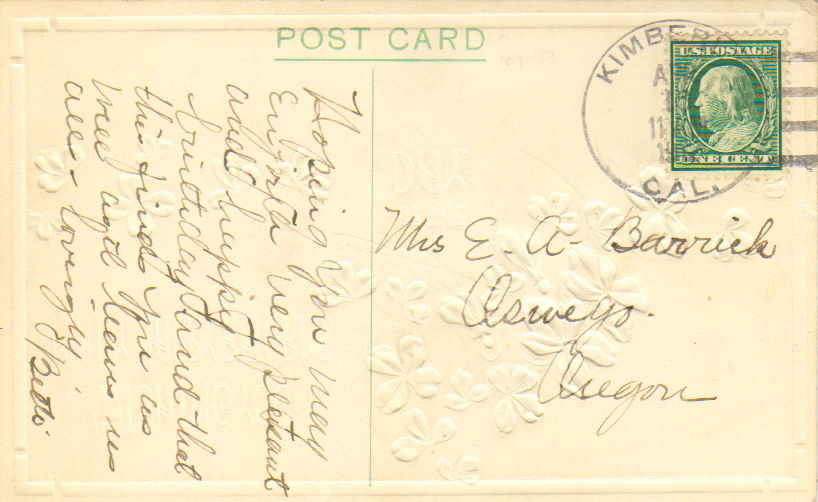 POST CARD
KIMBER
CAL.
U.S. POSTAGE
ONE CENT
Hoping you may
Enjoy a very pleasant
and happy
birthday and that
this finds you as
well as it leaves us
all - lovingly
Mrs E. A. Barrick
Oswego.
Oregon